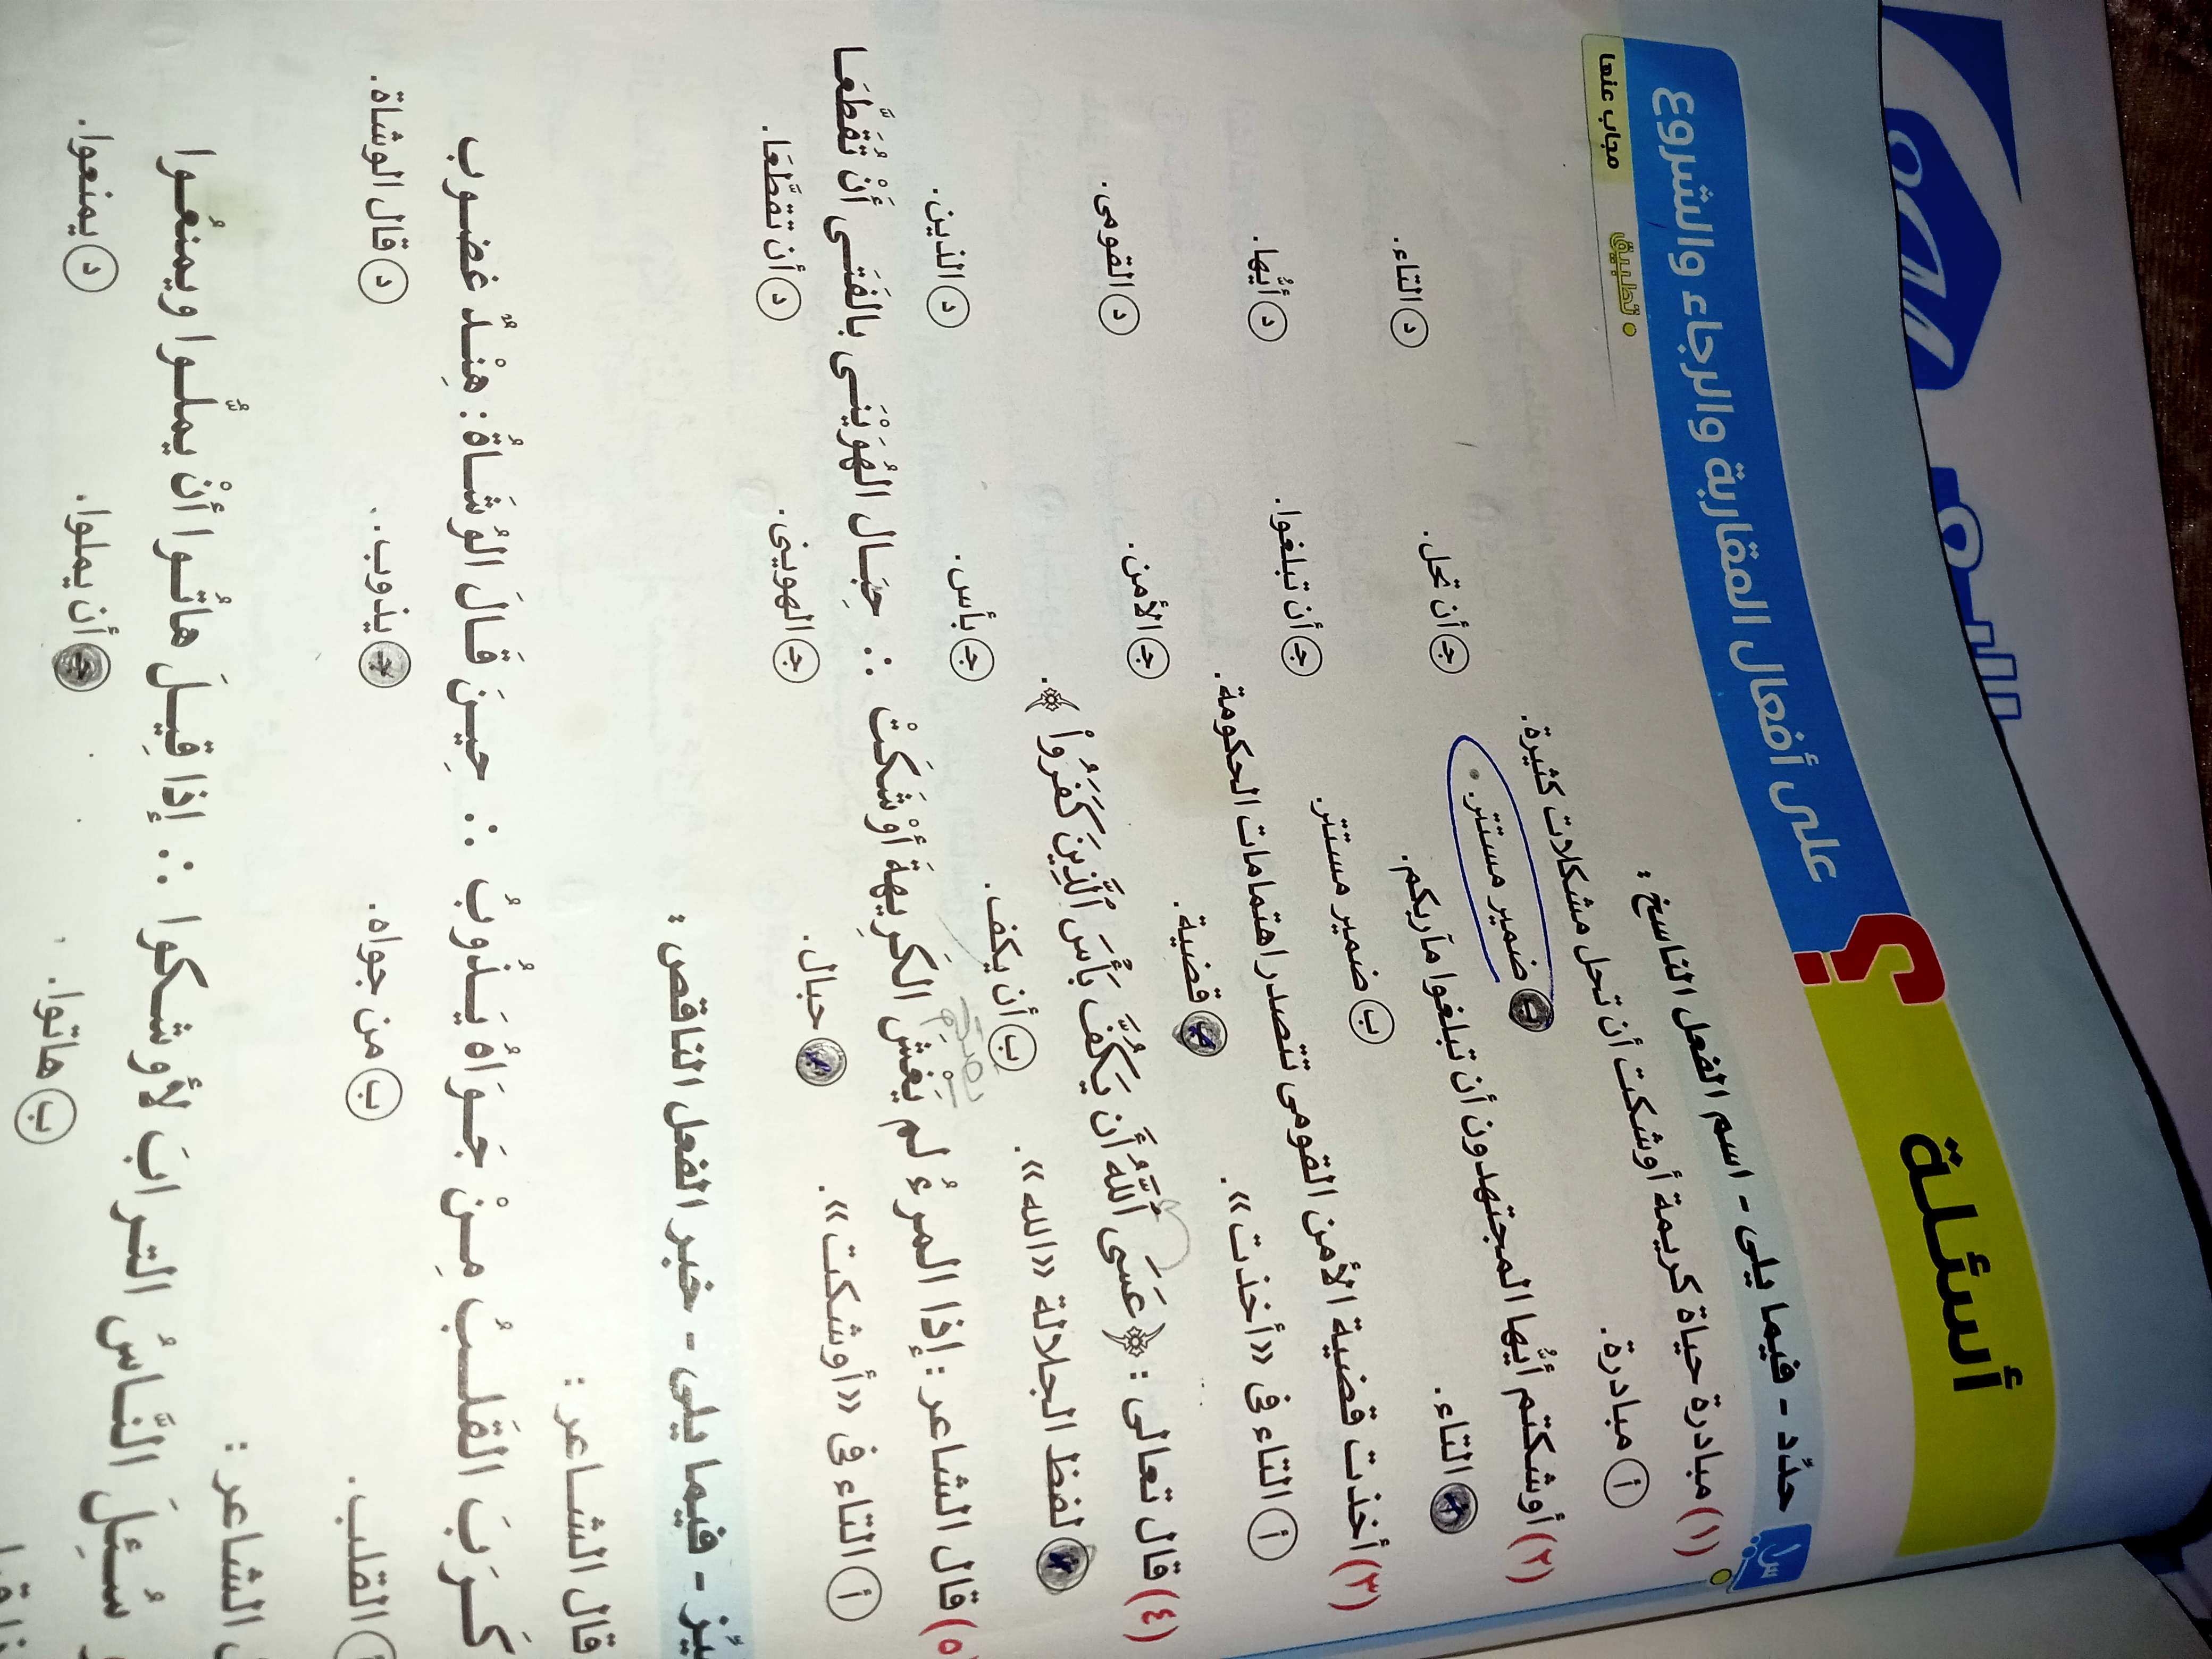 أسئلة
على أفعال المقاربة والرجاء والشروع
مجاب عنها
• تطبيق
س١ حدّد - فيما يلى - اسم الفعل الناسخ :
(١) مبادرة حياة كريمة أوشكت أن تحل مشكلات كثيرة.
أ مبادرة. ب ضمير مستتر. ج أن تحل. د التاء.
(٢) أوشكتم أيُّها المجتهدون أن تبلغوا مآربكم.
أ التاء. ب ضمير مستتر. ج أن تبلغوا. د أيُّها.
(٣) أخذت قضية الأمن القومى تتصدر اهتمامات الحكومة.
أ التاء فى «أخذت». ب قضية. ج الأمن. د القومى.
(٤) قال تعالى : ﴿عَسَى ٱللَّهُ أَن يَكُفَّ بَأْسَ ٱلَّذِينَ كَفَرُواْ﴾.
أ لفظ الجلالة «الله». ب أن يكف. ج بأس. د الذين.
(٥) قال الشاعر : إذا المرءُ لم يَغِشَ الكَرِيهَةَ أَوْشَكَتْ ∴ حِبَال الهُوَيْنَى بالفَتَى أَنْ تُقَطَّعَا
أ التاء فى «أوشكت». ب حبال. ج الهوينى. د أن تقطَّعَا.
يّز - فيما يلى - خبر الفعل الناقص :
قال الشاعر :
كَرَبَ القَلبُ مِنْ جَوَاهُ يَذُوبُ ∴ حِينَ قَالَ الوُشَاةُ : هِنْدٌ غضوب
القلب. ب من جواه. ج يذوب. د قال الوشاة.
الشاعر :
سُئِلَ النَّاسُ الترابَ لأوشكوا ∴ إذا قِيلَ هاتُوا أنْ يملُّوا ويمنعُوا
ب هاتوا. ج أن يملوا. د يمنعوا.